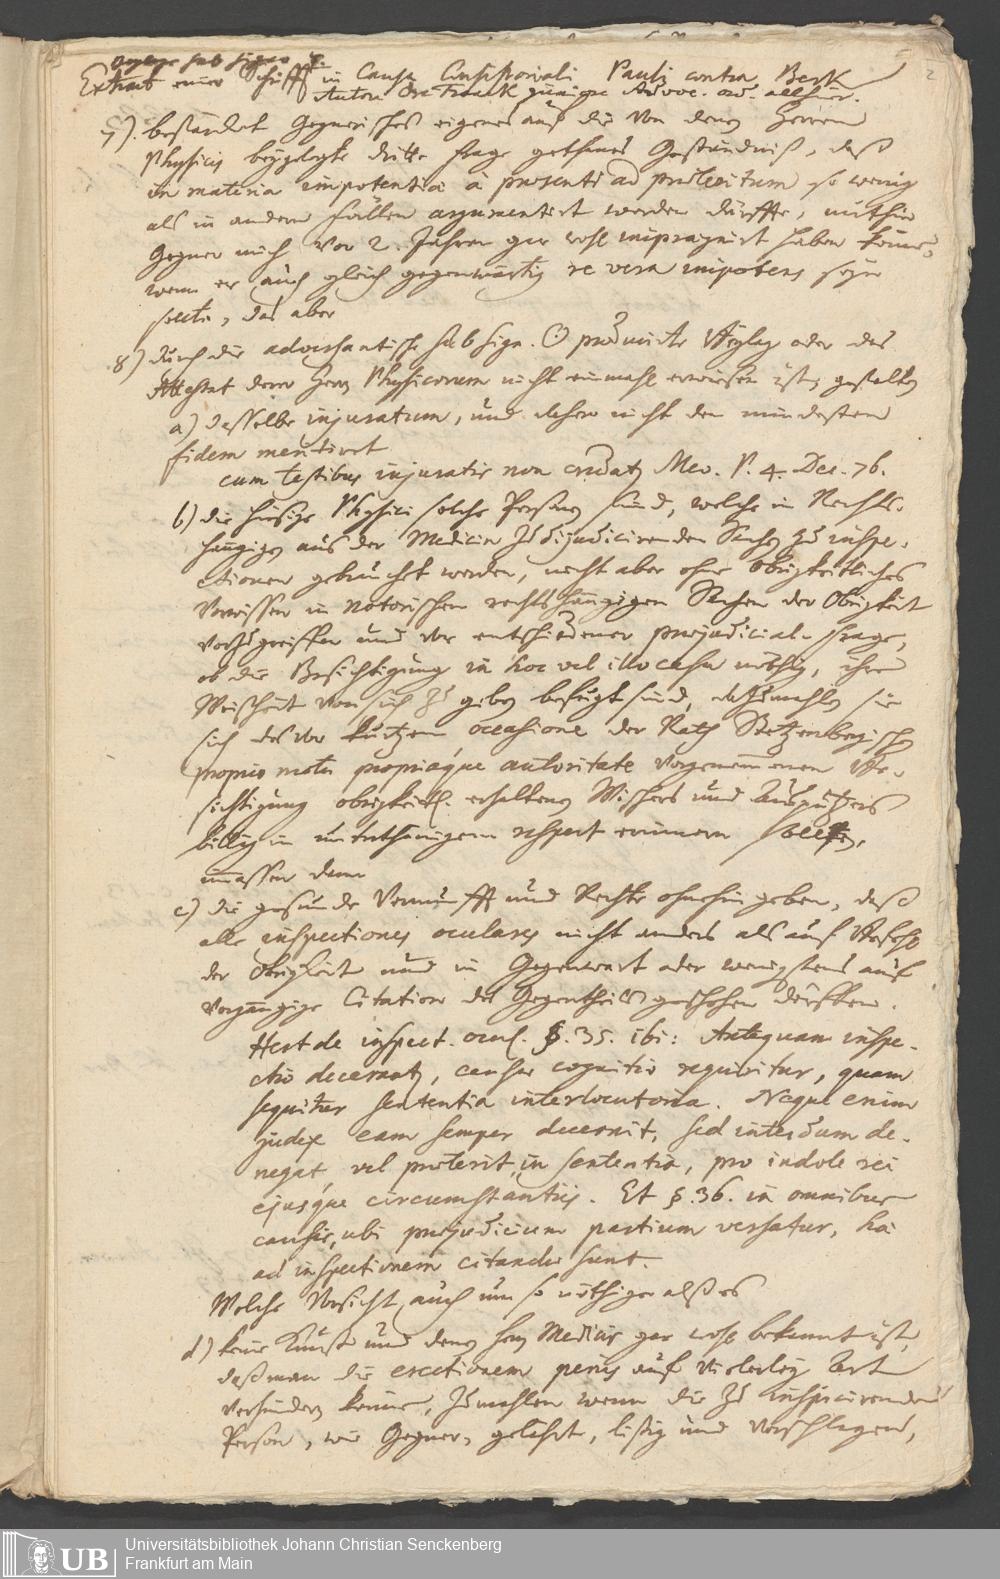 Anlage sub signo ☿.
Extract einer Schrifft in Causa Consistoriali Pauli contra Berk
Autore Dre Frank juniore Advoc. ord. allhier.
7). bestärcket Gegnerisches eigenes auf die von denen Herren
Physicis beygelegte dritte Frage gethanes Geständniß, daß
in materia impotentiæ à præsenti ad præteritum so wenig
als in andern Fällen argumentirt werden dürffte, mithin
Gegner mich vor 2. Jahren gar wohl imprægnirt haben könne,
wenn er auch gleich gegenwärtig re vera impotens seyn
sollte, das aber
8) durch die adversantische sub sign. ☉ producirte Beylag oder das
Attestat derer Herrn Physicorum nicht einmahl erwiesen ist, gestalten
a) dasselbe injuratum, und dahero nicht den mindesten
fidem meritiret
cum testibus injuratis non credatur Mev. P. 4. Dec. 76.
b) die hiesige Physici solche Personen sind, welche in Rechts-
hängigen aus der Medicin zu dijudicirenden Sachen zu inspe-
ctionen gebraucht werden, nicht aber ohne Obrigkeitliches
Vorwissen in notorischen rechtshängigen Sachen der Obrigkeit
vorzugreiffen und vor entschiedener præjudicial-Frage,
ob die Besichtigung in hoc vel illo casu nöthig, ihre
Weißheit von sich zu geben befugt sind, dazumahlen sie
sich des vor kurtzem occasione der Rath
proprio motu propriaque autoritate vorgenommenen Be-
sichtigung obrigkeitl. erhaltenen Wischers und Ausputzers
billig in unterthänigem respect erinnern sollten,
immassen denn
c) die gesunde Vernunfft und Rechte ohnehin geben, daß
alle inspectiones oculares nicht anders als auf Befehl
der Obrigkeit und in Gegenwart oder wenigstens auf
vorgängige Citation des Gegentheils geschehen dörffen.
Hert de inspect. ocul. §. 35. ibi: Antequam inspe-
ctio decernatur, causæ cognitio requiritur, quam
sequitur sententia interlocutoria. Neque enim
judex eam semper decernit, sed interdum de-
negat vel præterit in sententia, pro indole rei
ejusque circumstantiis. Et §. 36. in omnibus
causis, ubi præjudicium partium versatur, hæ
ad inspectionem citandæ sunt.
Welche Vorsicht auch um so nöthiger als es
d) keine Kunst und denen Herrn Medicis gar wohl bekannt ist,
daß man die erectionem penis auf vielerley Art
verhindern könne, zumahlen wenn die zu inspicirende
Person, wie Gegner, gelehrt, listig und verschlagen,
UB
Universitätsbibliothek Johann Christian Senckenberg
Frankfurt am Main